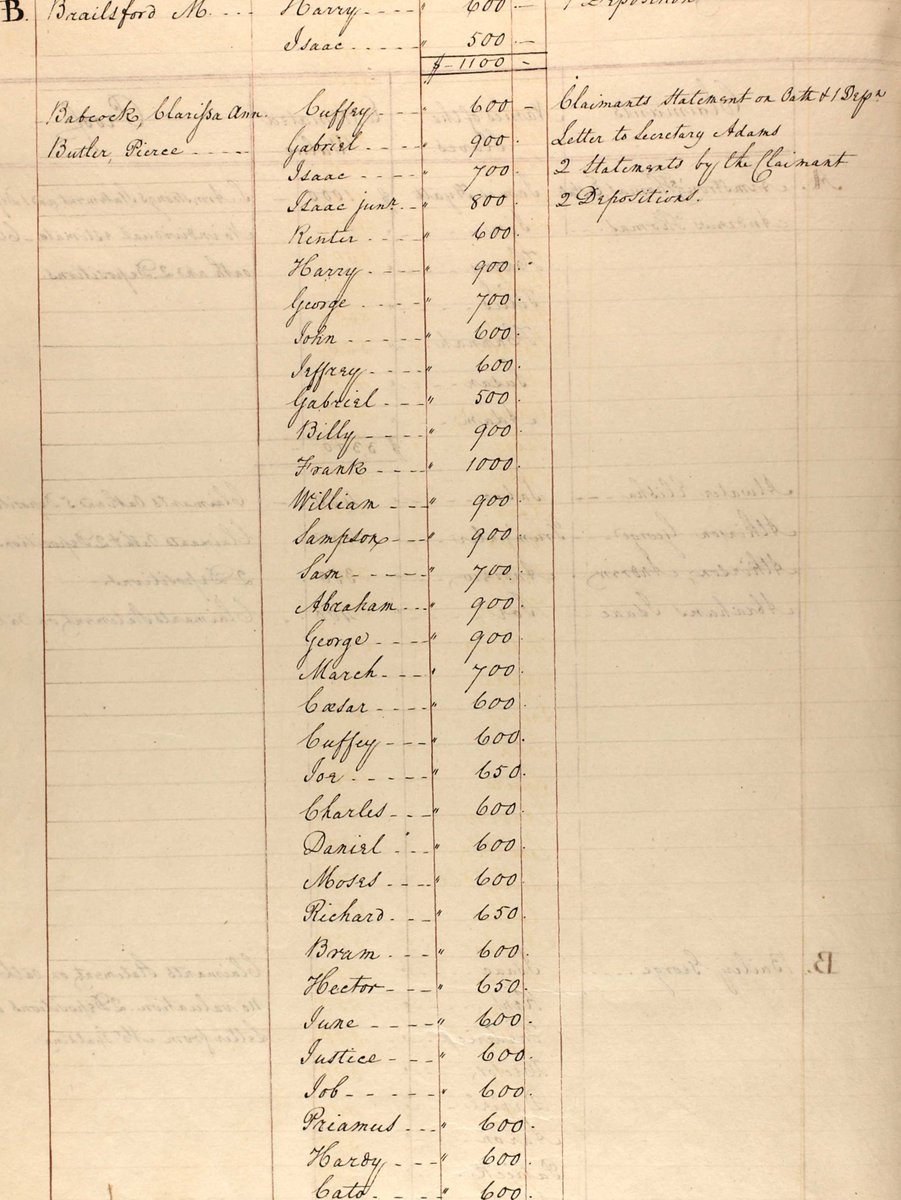 B. Brailsford M. --- Harry --- " 600 — 1 Deposition
Isaac ---- " 500 —
$ 1100 —
Babcock, Clarissa Ann Cuffey --- " 600 — Claimants Statement on Oath & 1 Depn
Butler, Pierce ---- Gabriel --- " 900. Letter to Secretary Adams
Isaac ---- " 700. 2 Statements by the Claimant
Isaac junr. " 800. 2 Depositions.
Renter --- " 600.
Harry --- " 900.
George --- " 700.
John ---- " 600.
Jeffrey --- " 600.
Gabriel --- " 500.
Billy --- " 900.
Frank --- " 1000.
William --- " 900.
Sampson --- " 900.
Sam ---- " 700.
Abraham --- " 900.
George --- " 900.
March --- " 700.
Cæsar --- " 600.
Cuffey --- " 600.
Joe ---- " 650.
Charles --- " 600.
Daniel --- " 600.
Moses --- " 600.
Richard --- " 650.
Bram --- " 600.
Hector --- " 650.
June ---- " 600.
Justice --- " 600.
Job ---- " 600.
Priamus --- " 600.
Hardy --- " 600.
Cato --- " 600.